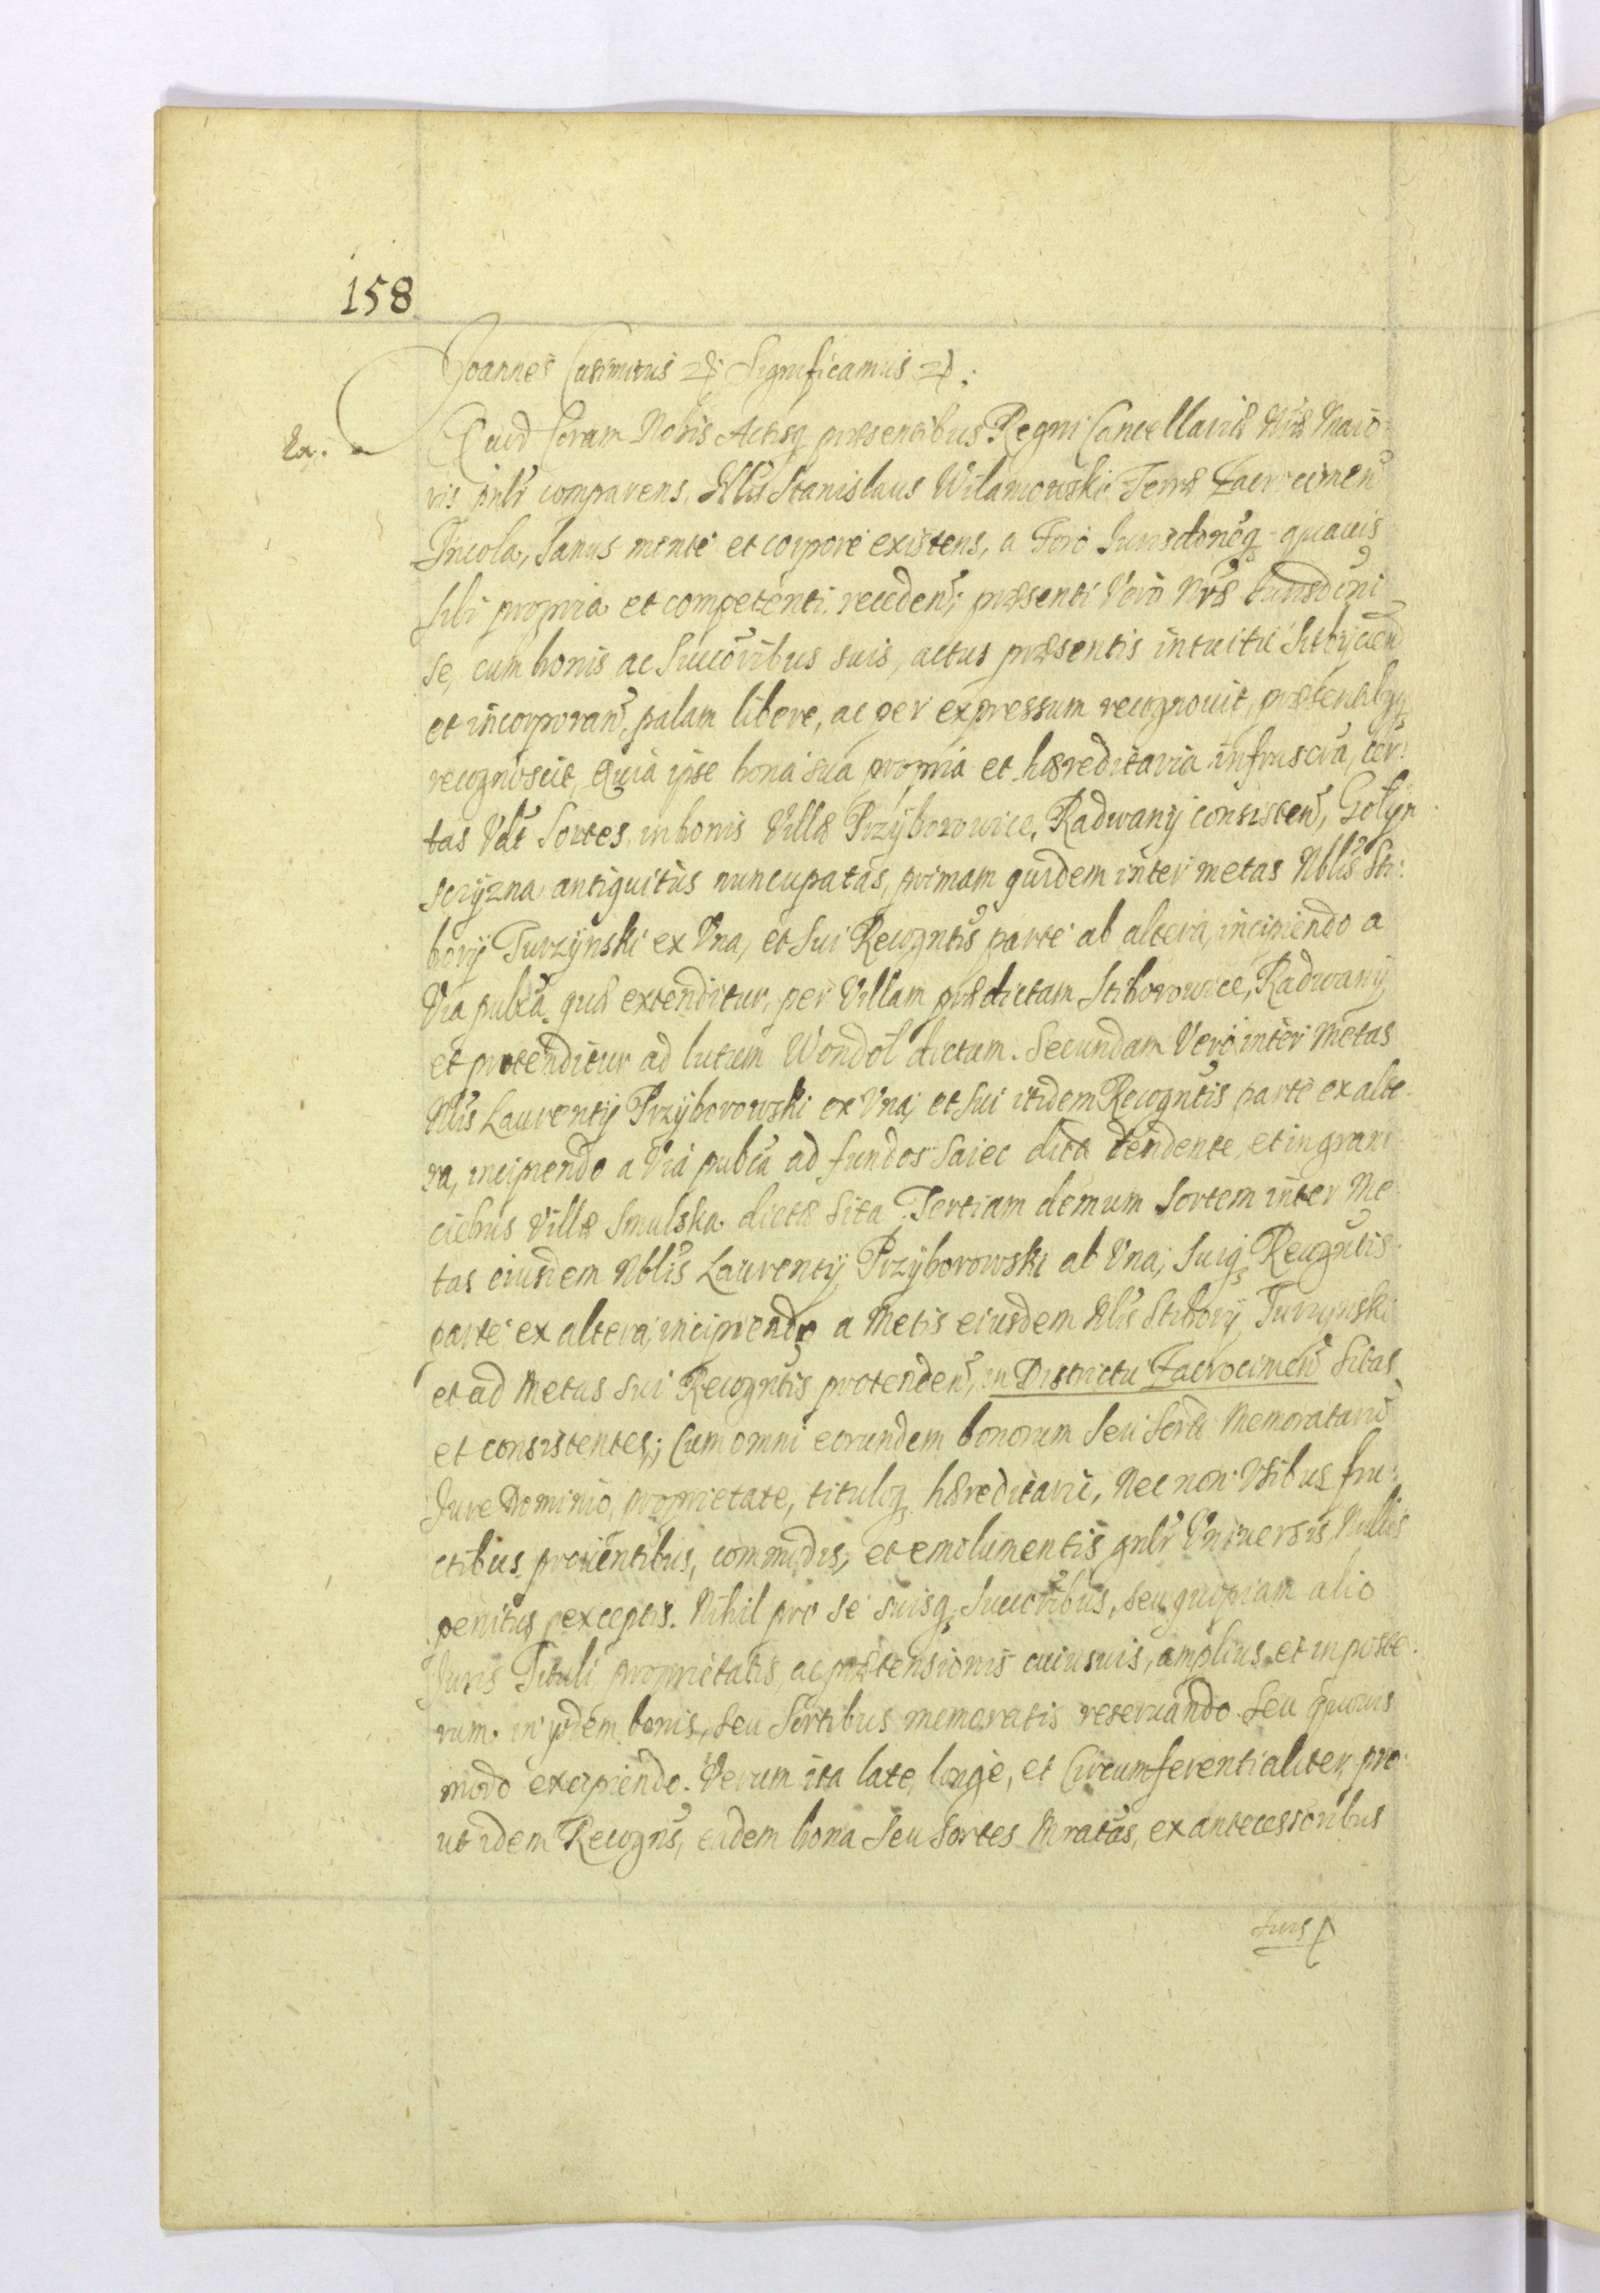 158
Joannes Casimirus etc. Significamus etc.
Quod Coram Nobis Actisq præsentibus Regni Cancellariæ Nræ Maio
ris pnlr comparens, Nblis Stanislaus Wilamowski Terræ Zacrocimen
Incola, sanus mente et corpore existens, a Foro Jurisdoneq quauis
sibi propria et competenti recedens; præsenti Vero Nræ Jurisdoni
se, cum bonis ac Succoribus suis, actus præsentis intuitu subijcien
et incorporan, palam libere, ac per expressum recognouit, præsentibzq
recognoscit, Quia ipse bona sua propria et hæreditaria infrascra, cer
tas Vdt Sortes, in bonis Villæ Przyborowice, Radwany consisten, Gołyn
sczyzna antiquitus nuncupatas, primam quidem inter metas Nblis Sti:
borij Turzynski ex Vna, et sui Recogntis parte ab altera, incipiendo a
Via publca quæ extenditur, per Villam prædictam Stiborowice, Radwany
et protenditur ad lutum Wondoł dictam. Secundam Vero inter Metas
Nblis Laurentij Przyborowski ex Vna, et sui itidem Recogntis parte ex alte
ra, incipiendo a Via publca ad fundos Saiec dicta tendente, et in grani
ciebus Villæ Smulska dictæ sita. Tertiam demum Sortem inter Me
tas eiusdem Nblis Laurentij Przyborowski ab Vna, suiq Recogntis
parte ex altera, incipiendo a Metis eiusdem Nblis Stiborij Turzynski
et ad Metas sui Recogntis protenden, in Districtu Zacrocimen sitas
et consistentes; Cum omni eorundem bonorum seu Sorti Memoratarum
Jure Dominio, proprietate, tituloq hæreditario, Nec non Vsibus fru
ctibus prouentibus, commodis, et emolumentis gnlr Vniuersis Nullis
penitus exceptis. Nihil pro se suisq Succoribus, seu quopiam alio
Juris Tituli proprietatis, ac prætensionis cuiusuis, amplius et in poste
rum in ijsdem bonis, seu Sortibus memoratis reseruando seu quouis
modo excipiendo. Verum ita late, longe, et Circumferentialiter, pro
ut idem Recogns, eadem bona seu Sortes Mratas, ex antecessoribus
suis